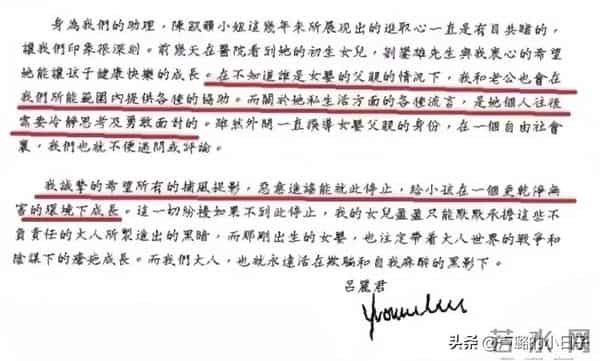 身為我們的助理，陳凱韻小姐這幾年來所展現出的進取心一直是有目共睹的，
讓我們印象很深刻。前幾天在醫院看到她的初生女兒，劉鑾雄先生與我衷心的希望
她能讓孩子健康快樂的成長。在不知道誰是女嬰的父親的情況下，我和老公也會在
我們所能範圍內提供各種的協助。而關於她私生活方面的各種流言，是她個人往後
需要冷靜思考及勇敢面對的。雖然外間一直誤導女嬰父親的身份，在一個自由社會
裏，我們也就不便過問或評論。
我誠摯的希望所有的捕風捉影，惡意造謠能就此停止，給小孩在一個更乾淨無
害的環境下成長。這一切紛擾如果不到此停止，我的女兒盈盈只能默默承擔這些不
負責任的大人所製造出的黑暗，而那剛出生的女嬰，也注定帶着大人世界的戰爭和
陰謀下的瘡疤成長。而我們大人，也就永遠活在欺騙和自我麻醉的黑影下。
呂麗君
头条 @璐璐的小日子